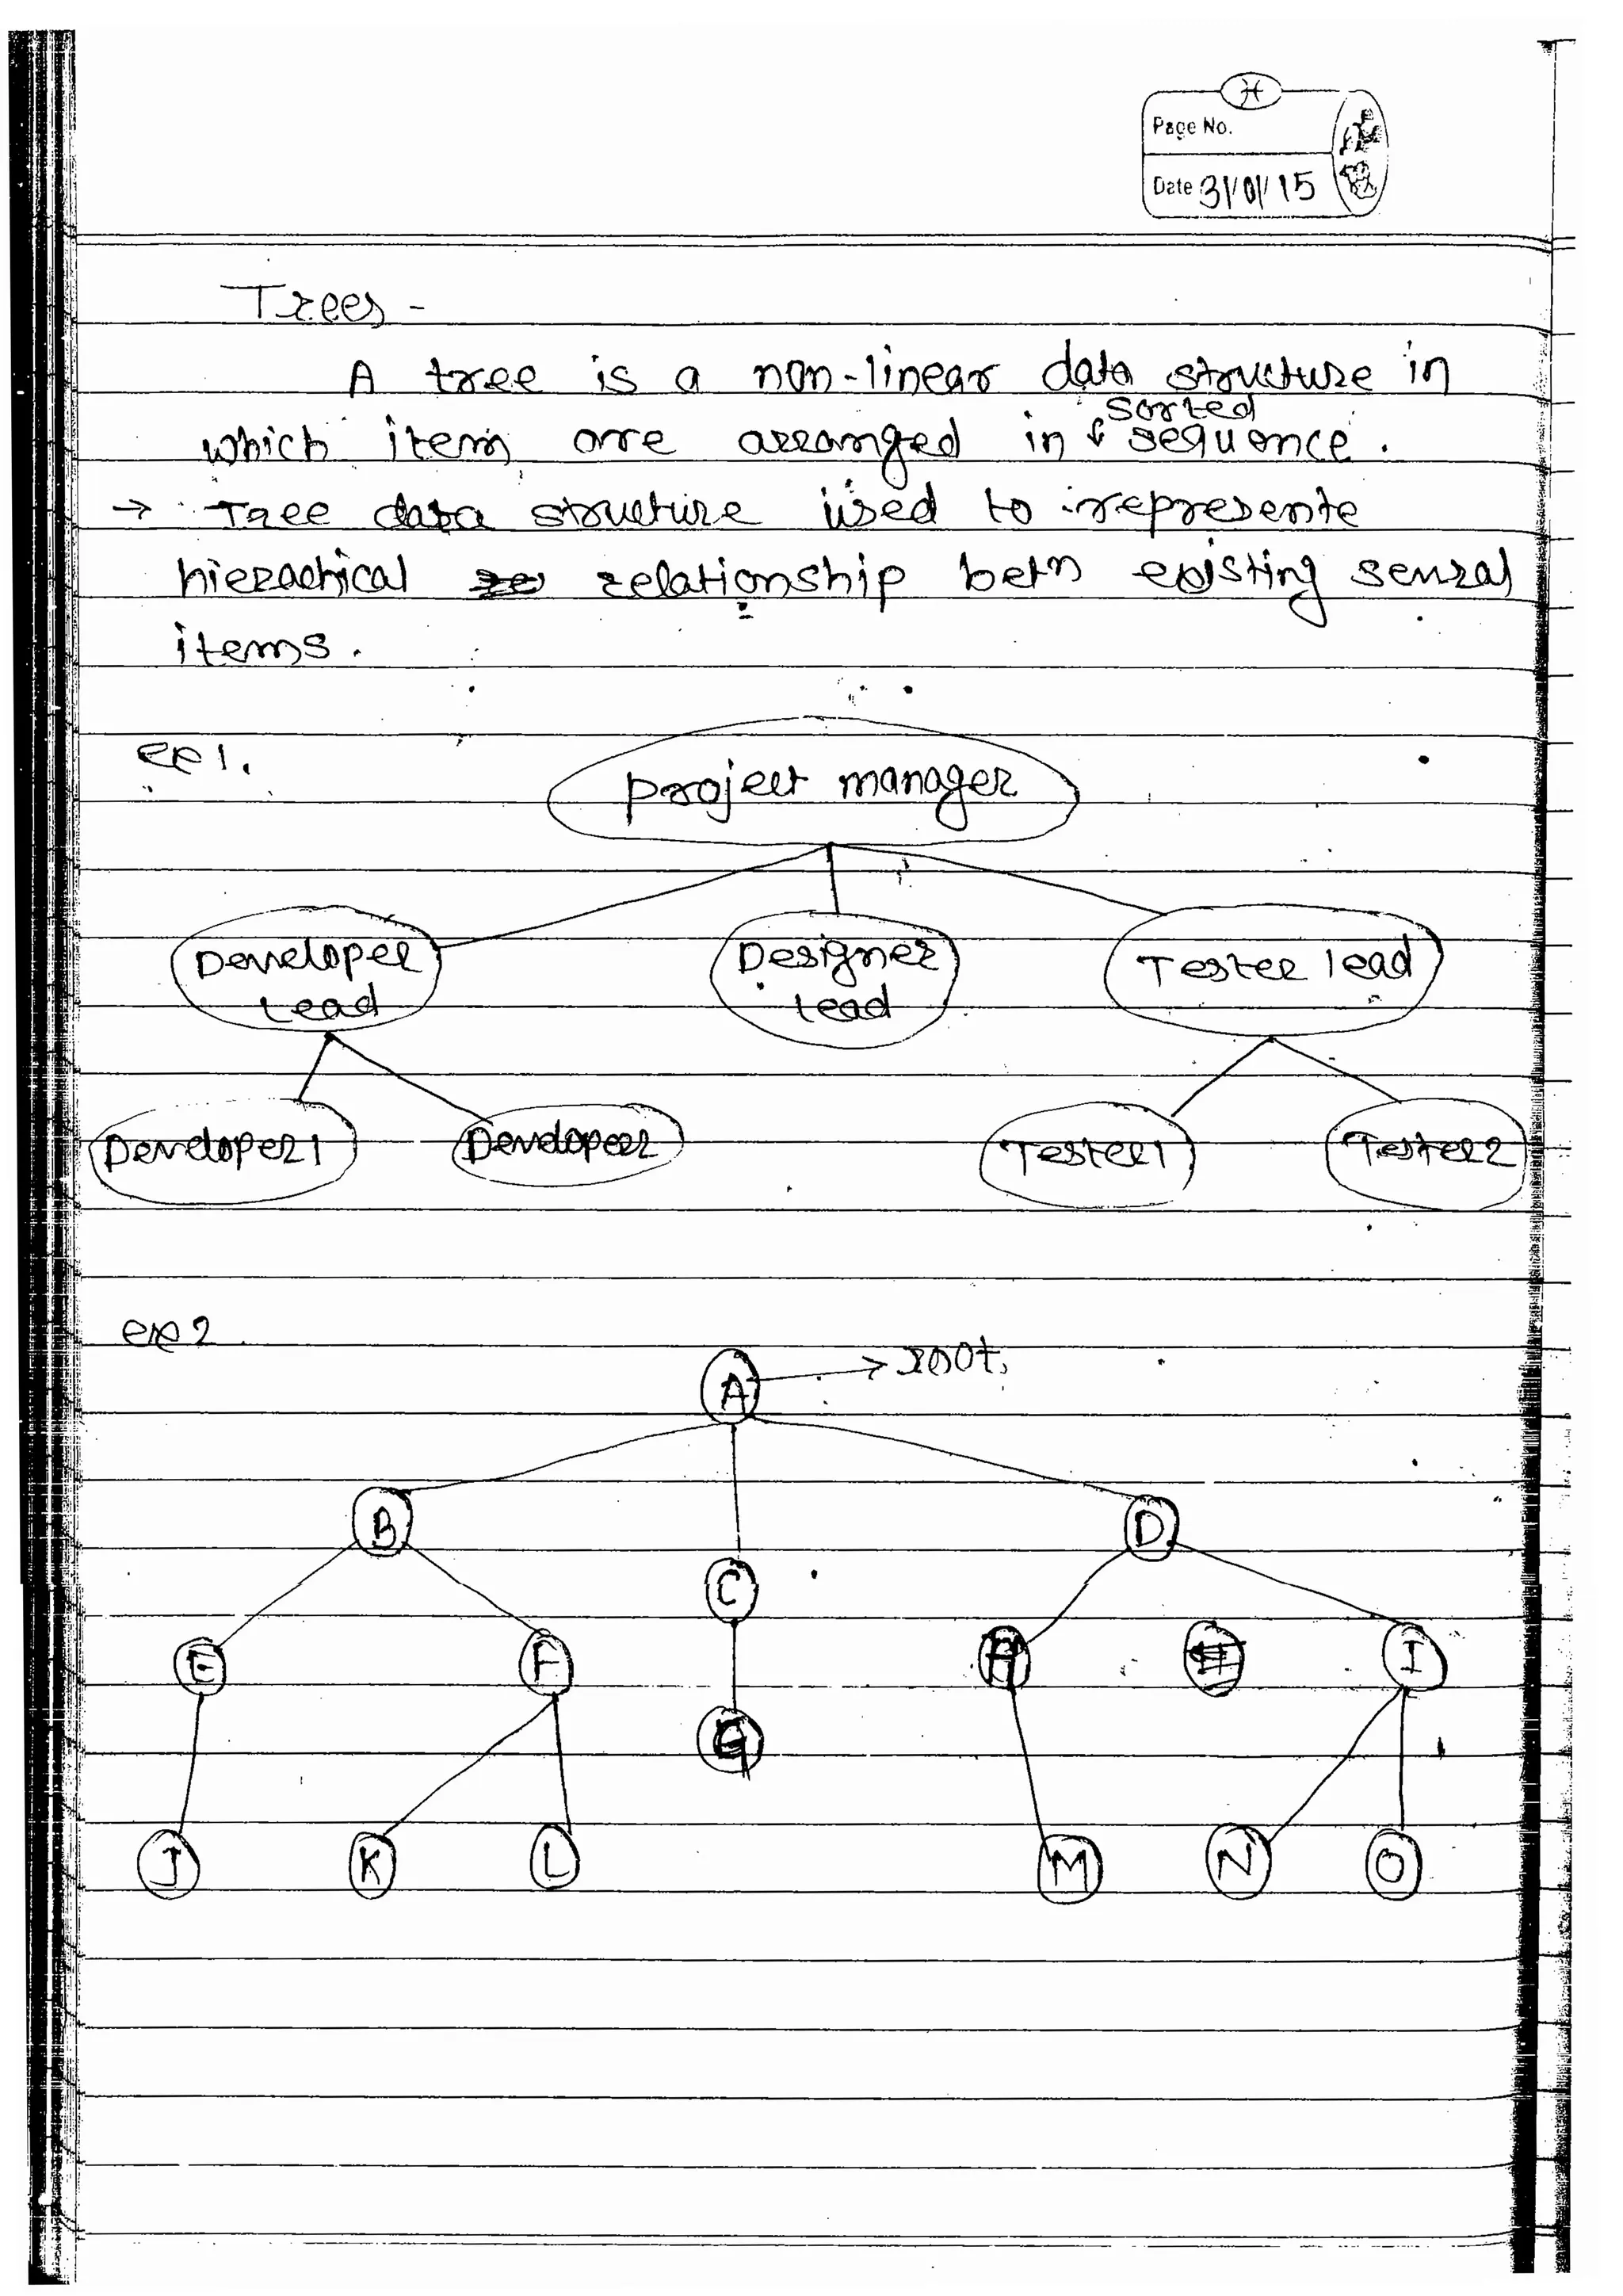 Page No.
Date 31/01/15
Trees -
A tree is a non-linear data structure in
which items are arranged in sorted sequence.
→ Tree data structure used to represente
hierachical relationship betn existing sevral
items.
ex 1.
project manager
Developer Designer Tester lead
Lead lead
Developer1 Developer2 Tester1 Tester2
ex 2
A → root.
B D
C
E F H I
G
J K L M N O